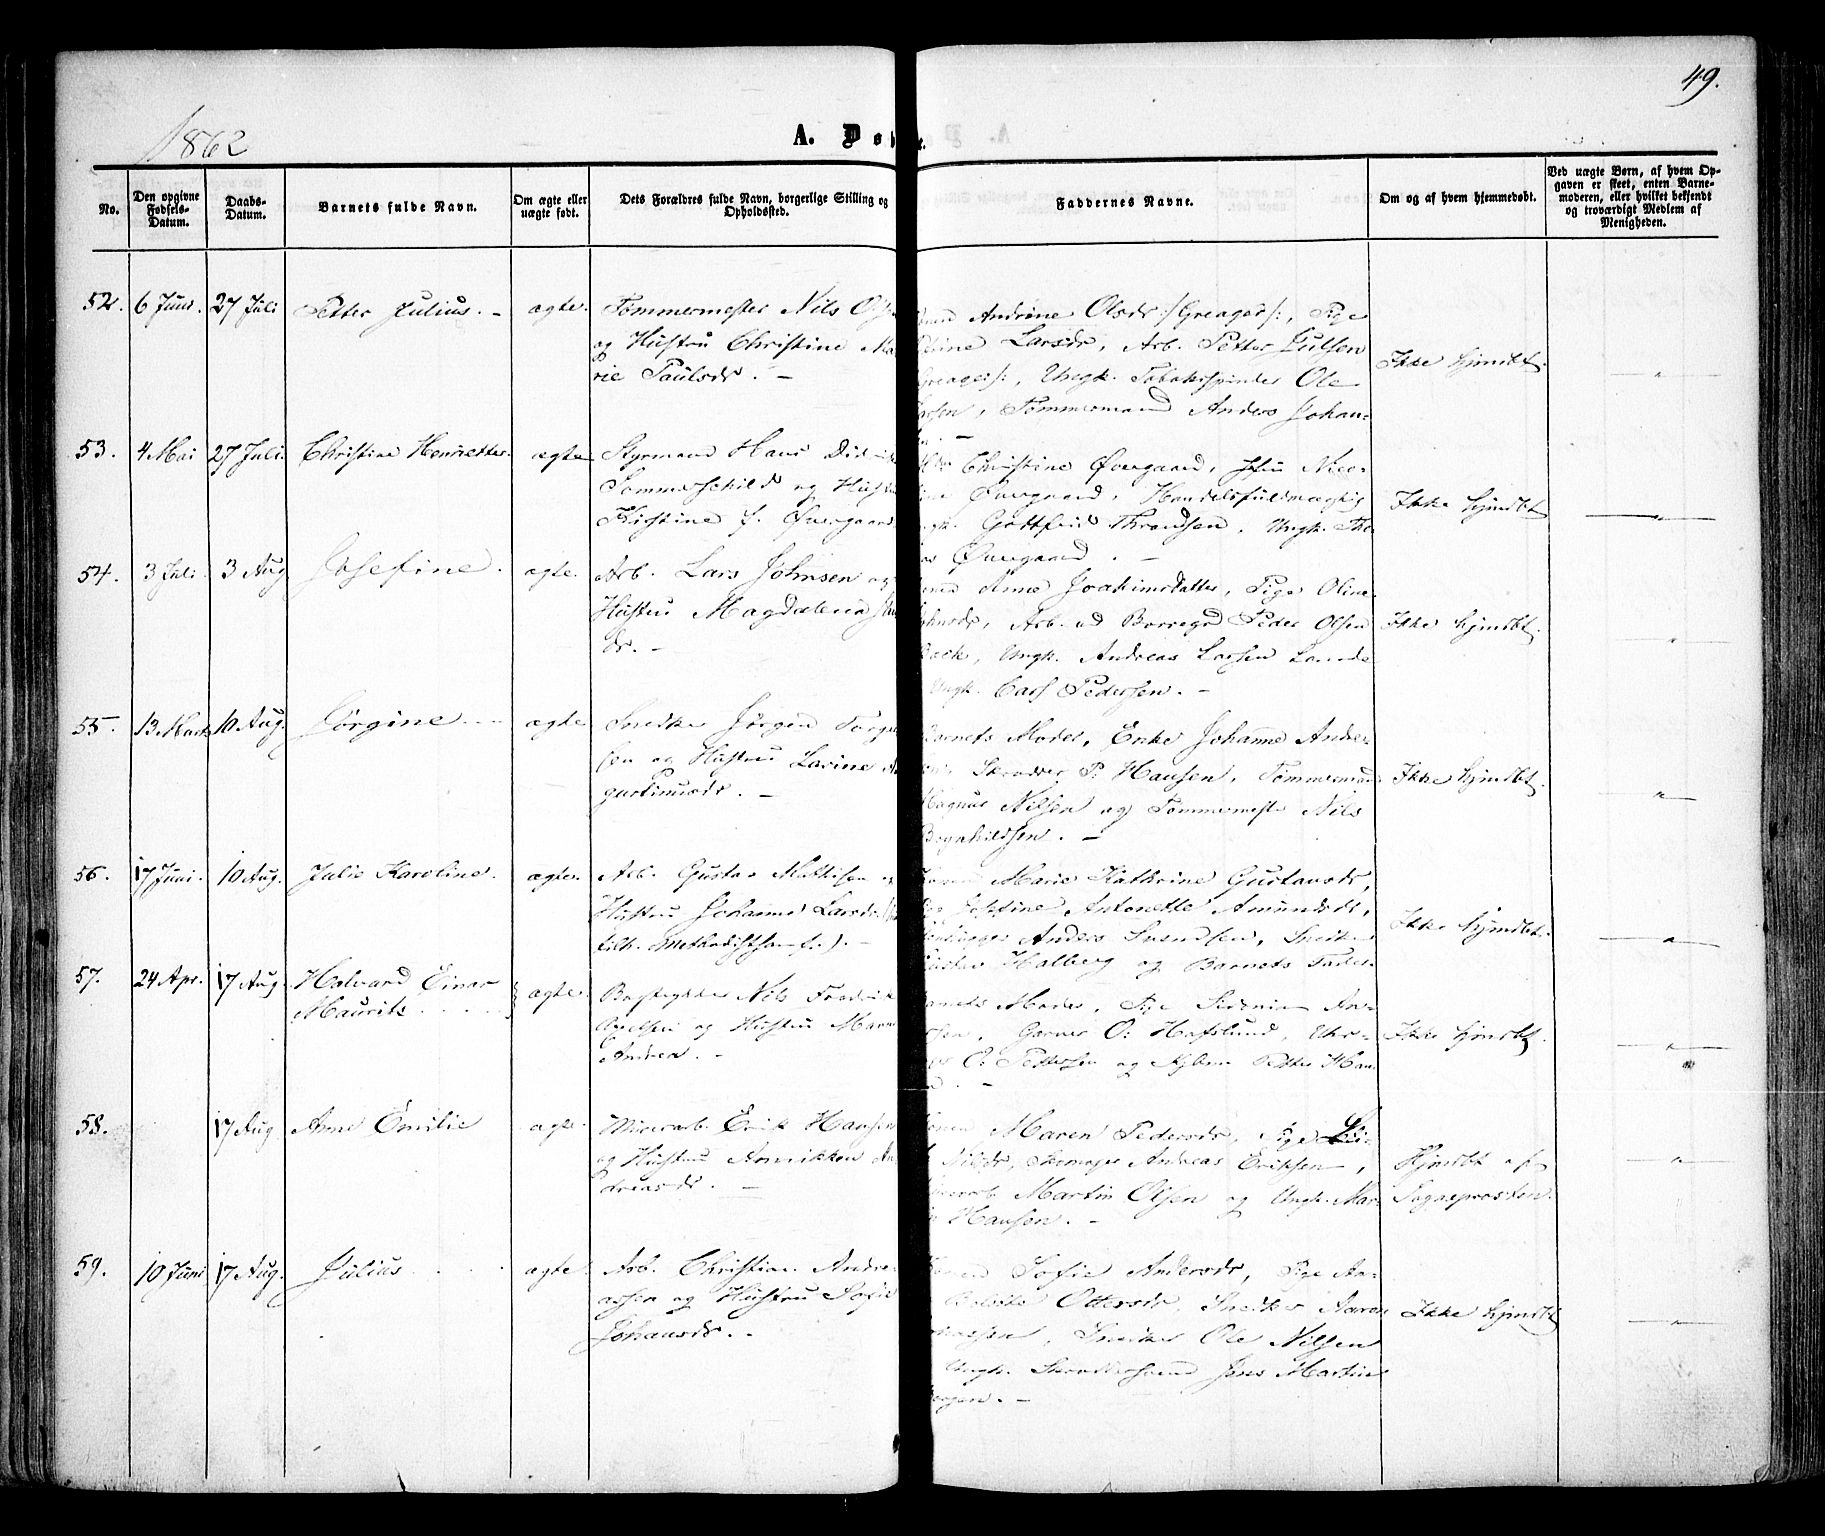 49.
1862
A. Døbte.
No.
Den opgivne Fødsels-Datum.
Daabs-Datum.
Barnets fulde Navn.
Om ægte eller uægte født.
Dets Forældres fulde Navn, borgerlige Stilling og Opholdssted.
Faddernes Navne.
Om og af hvem hjemmedøbt.
Ved uægte Børn, af hvem Opgaven er skeet, enten Barnemoderen, eller hvilket bekjendt og troværdigt Medlem af Menigheden.
52. 6 Juni. 27 Juli Petter Julius. - ægte. Tømmermester Nils
og Hustru Christine Ma
rie Paulsdr. -
Andrine Olsdr /:Greager:/, Pige
Larsdr, Arb. Petter Julsen
Greager:/, Ungk. Tobaksspinder Ole
Tømmermand Anders Johan-
Ikke hjmdbt.
53. 4 Mai 27 Juli. Christine Henriette. ægte Styrmand Hans Did
Sommerschild og Hust
Kirstine f. Øvergaard
Christine Øvergaard, Nico-
Øvergaard, Handelsfuldmægtig
Gottfrid Throndsen. Ungk. Tho-
Øvergaard. -
Ikke hjmdbt
54. 3 Juli. 3 Aug Josefine. ægte. Arb. Lars Johnsen og
Hustru Magdalena
dr. -
Anne Joakimsdatter, Pige Oline
Arb. Peder Olsen
Back, Ungk. Andreas Larsen Lande
Ungk. Carl Pedersen. -
Ikke hjmdbt.
55. 13 Marts 10 Aug. Jørgine ægte Snedker Jørgen Torge
sen og Hustru Lavine A
gustinusdr. -
Barnets Moder, Enke Johanne Andre-
Skrædder P. Hansen, Tømmermand
Magnus Nilsen og Tømmermest. Nils
Ikke hjmdbt.
56. 17 Juni. 10 Aug. Julie Karoline. ægte. Arb. Gustav Mattisen og
Hustru Johanne Larsdr.
tilh. Methodistsamf.). -
Marie Kathrine Gustavsdr,
Josefine Antonette Amundsdr,
Anders Svendsen, Snedker
Gustav Halberg og Barnets Fader
Ikke hjmdbt.
57. 24 Apr. 17 Aug Halvard Einar
Maurits ægte. Nils Fredrik
Axelsen og Hustru Maren
Andrea. -
Barnets Moder, Pige Sirenia An-
Garver O: Hafslund, Uhr-
O: Pettersen og Petter Han
Ikke hjmdbt.
58. 17 Aug Anne Emilie ægte. Minerarb. Erik Hansen
og Hustru Annikken An
dreasdr. -
Maren Pedersdr, Pige
Nilsdr, Skomager Andreas Eriksen,
Martin Olsen og Ungk. Mar-
Hansen. -
Hjmdbt af
Sogneprosten.
59. 10 Juni 17 Aug. Julius ægte. Arb. Christian Andre
assen og Hustru Sofie
Johansdr. -
Sofie Andersdr, Pige An-
Bolette Ottersdr, Snedker Aaren
Snedker Ole Nilsen
Ungk. Skræddersvend Jens Martin
Ikke hjmdbt